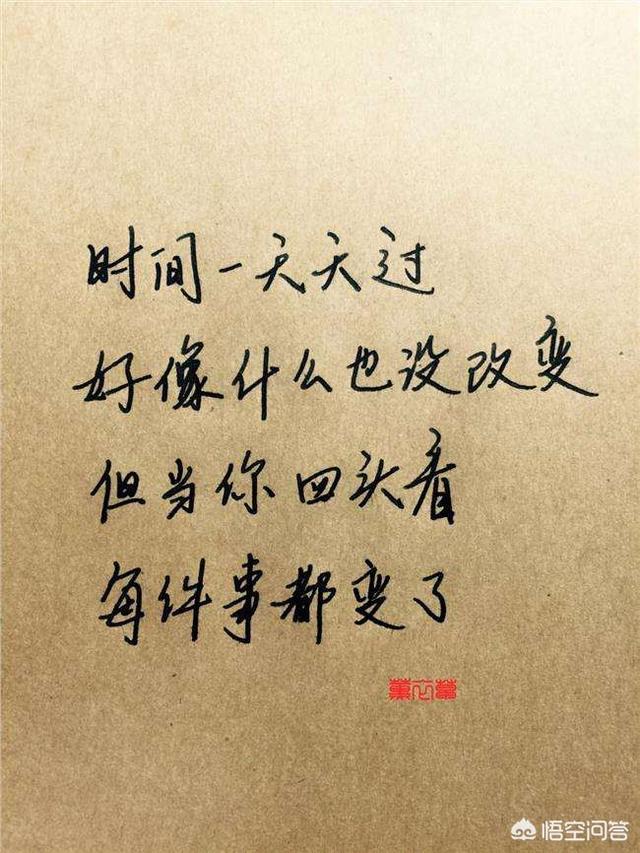 时间一天天过
好像什么也没改变
但当你回头看
每件事都变了
悟空问答